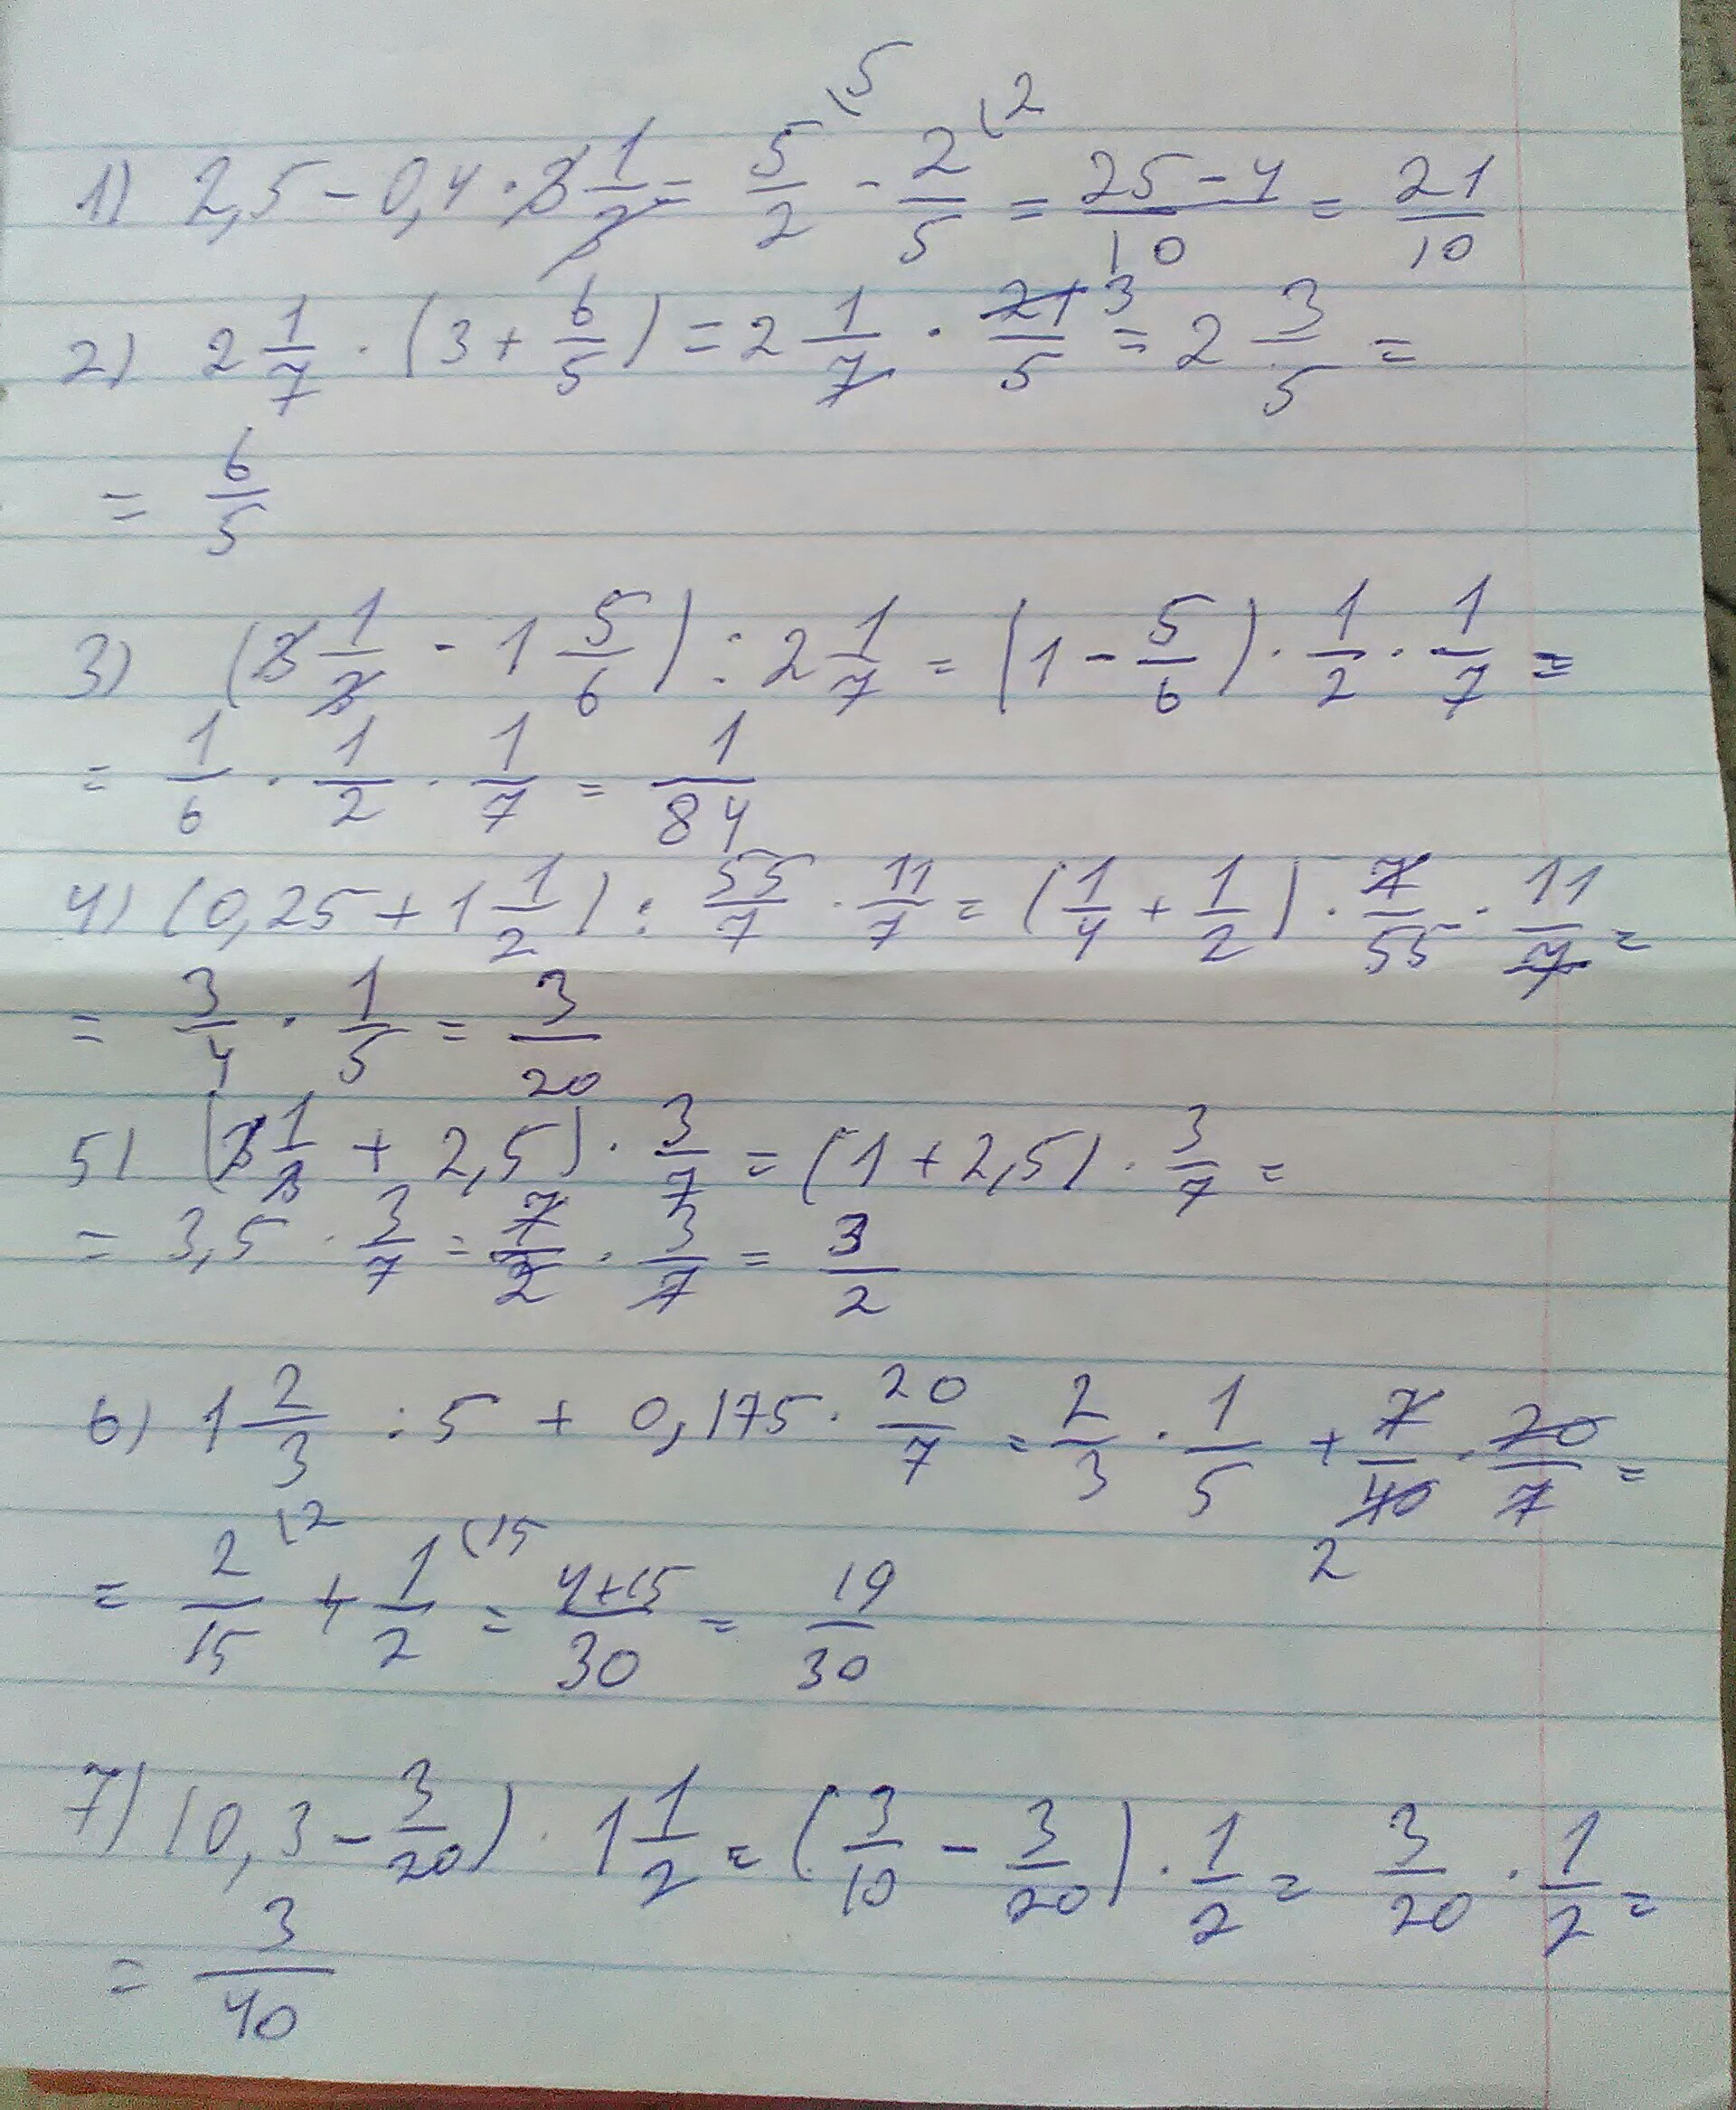 1) 2,5 - 0,4 · 3 1/3 = 5/2 \5 - 2/5 \2 = (25 - 4)/10 = 21/10
2) 2 1/7 · (3 + 6/5) = 2 1/7 · 21/5 3 = 2 3/5 =
= 6/5
3) (3 1/3 - 1 5/6) : 2 1/7 = (1 - 5/6) · 1/2 · 1/7 =
= 1/6 · 1/2 · 1/7 = 1/84
4) (0,25 + 1 1/2) : 55/7 · 11/7 = (1/4 + 1/2) · 7/55 · 11/7 =
= 3/4 · 1/5 = 3/20
5) (3 1/3 + 2,5) · 3/7 = (1 + 2,5) · 3/7 =
= 3,5 · 3/7 = 7/2 · 3/7 = 3/2
6) 1 2/3 : 5 + 0,175 · 20/7 = 2/3 · 1/5 + 7/40 2 · 20/7 =
= 2/15 \2 + 1/2 \15 = (4+15)/30 = 19/30
7) (0,3 - 3/20) · 1 1/2 = (3/10 - 3/20) · 1/2 = 3/20 · 1/2 =
= 3/40